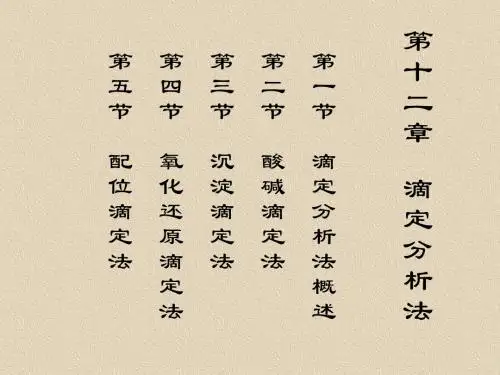 第十二章 滴定分析法
第一节 滴定分析法概述
第二节 酸碱滴定法
第三节 沉淀滴定法
第四节 氧化还原滴定法
第五节 配位滴定法